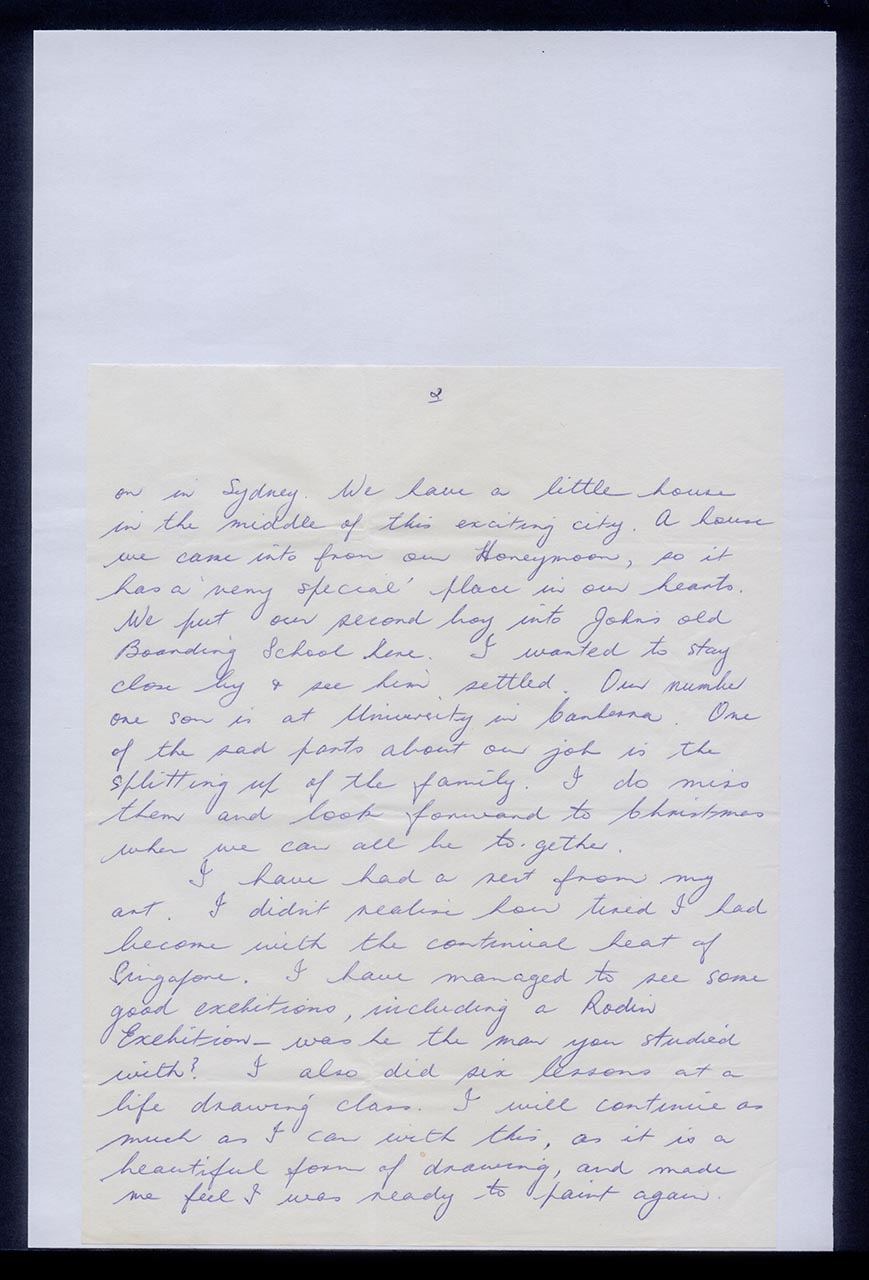 2
on in Sydney. We have a little house
in the middle of this exciting city. A house
we came into from our Honeymoon, so it
has a 'very special' place in our hearts.
We put our second boy into John's old
Boarding School here. I wanted to stay
close by & see him settled. Our number
one son is at University in Canberra. One
of the sad parts about our job is the
splitting up of the family. I do miss
them and look forward to Christmas
when we can all be to-gether.
I have had a rest from my
art. I didn't realise how tired I had
become with the continual heat of
Singapore. I have managed to see some
good exebitions, including a Rodin
Exebition - was he the man you studied
with? I also did six lessons at a
life drawing class. I will continue as
much as I can with this, as it is a
beautiful form of drawing, and made
me feel I was ready to paint again.